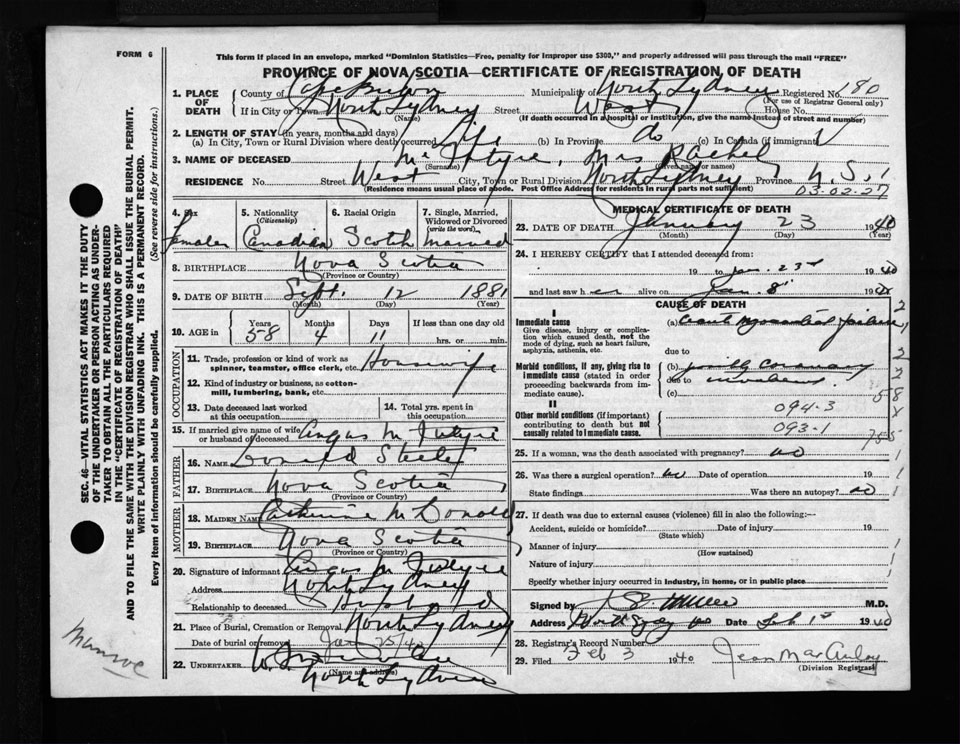 FORM 6
This form if placed in an envelope, marked "Dominion Statistics—Free, penalty for improper use $300," and properly addressed will pass through the mail "FREE"
PROVINCE OF NOVA SCOTIA—CERTIFICATE OF REGISTRATION OF DEATH
1. PLACE OF DEATH County of Cape Breton Municipality of North Sydney Registered No. 180
(For use of Registrar General only)
If in City or Town North Sydney Street West House No.
(Name) (If death occurred in a hospital or institution, give the name instead of street and number)
2. LENGTH OF STAY (in years, months and days)
(a) In City, Town or Rural Division where death occurred Life (b) In Province do (c) In Canada (if immigrant)
3. NAME OF DECEASED McIntyre, Mrs Rachel
(Surname) (Given name or names)
RESIDENCE No. Street West City, Town or Rural Division North Sydney Province N.S.
(Residence means usual place of abode. Post Office Address for residents in rural parts not sufficient) 03-02-27
4. Sex 5. Nationality 6. Racial Origin 7. Single, Married, Widowed or Divorced
(Citizenship) (write the word)
Female Canadian Scotch Married
8. BIRTHPLACE Nova Scotia
(Province or Country)
9. DATE OF BIRTH Sept. 12 1881
(Month) (Day) (Year)
10. AGE in Years Months Days If less than one day old
58 4 11 hrs. or min.
OCCUPATION
11. Trade, profession or kind of work as spinner, teamster, office clerk, etc. Housewife
12. Kind of industry or business, as cotton-mill, lumbering, bank, etc.
13. Date deceased last worked at this occupation 14. Total yrs. spent in this occupation
15. If married give name of wife or husband of deceased Angus McIntyre
FATHER
16. NAME Donald Steele
17. BIRTHPLACE Nova Scotia
(Province or Country)
MOTHER
18. MAIDEN NAME Catherine McDonald
19. BIRTHPLACE Nova Scotia
(Province or Country)
20. Signature of informant Angus McIntyre
Address North Sydney
Relationship to deceased Husband
21. Place of Burial, Cremation or Removal North Sydney
Date of burial or removal Jan 25/40
22. UNDERTAKER
(Name and address)
North Sydney
MEDICAL CERTIFICATE OF DEATH
23. DATE OF DEATH January 23 1940
(Month) (Day) (Year)
24. I HEREBY CERTIFY that I attended deceased from:
19 to Jan. 23rd 1940
and last saw her alive on Jan. 8" 1940
CAUSE OF DEATH
I
Immediate cause (a) Acute Myocardial failure
Give disease, injury or complication which caused death, not the mode of dying, such as heart failure, asphyxia, asthenia, etc.
due to
Morbid conditions, if any, giving rise to immediate cause (stated in order proceeding backwards from immediate cause). (b) possibly Coronary
due to
(c)
II
Other morbid conditions (if important) contributing to death but not causally related to immediate cause.
094-3
093-1
25. If a woman, was the death associated with pregnancy? no
26. Was there a surgical operation? no Date of operation 19
State findings Was there an autopsy? no
27. If death was due to external causes (violence) fill in also the following:—
Accident, suicide or homicide? Date of injury 19
(State which)
Manner of injury
(How sustained)
Nature of injury
Specify whether injury occurred in industry, in home, or in public place
Signed by M.D.
Address North Sydney NS Date Feb 1st 1940
28. Registrar's Record Number
29. Filed Feb 3 1940 Jean MacAulay
(Division Registrar)
SEC. 46—VITAL STATISTICS ACT MAKES IT THE DUTY OF THE UNDERTAKER OR PERSON ACTING AS UNDERTAKER TO OBTAIN ALL THE PARTICULARS REQUIRED IN THE "CERTIFICATE OF REGISTRATION OF DEATH" AND TO FILE THE SAME WITH THE DIVISION REGISTRAR WHO SHALL ISSUE THE BURIAL PERMIT.
WRITE PLAINLY WITH UNFADING INK. THIS IS A PERMANENT RECORD.
Every item of information should be carefully supplied. (See reverse side for instructions.)
Munroe